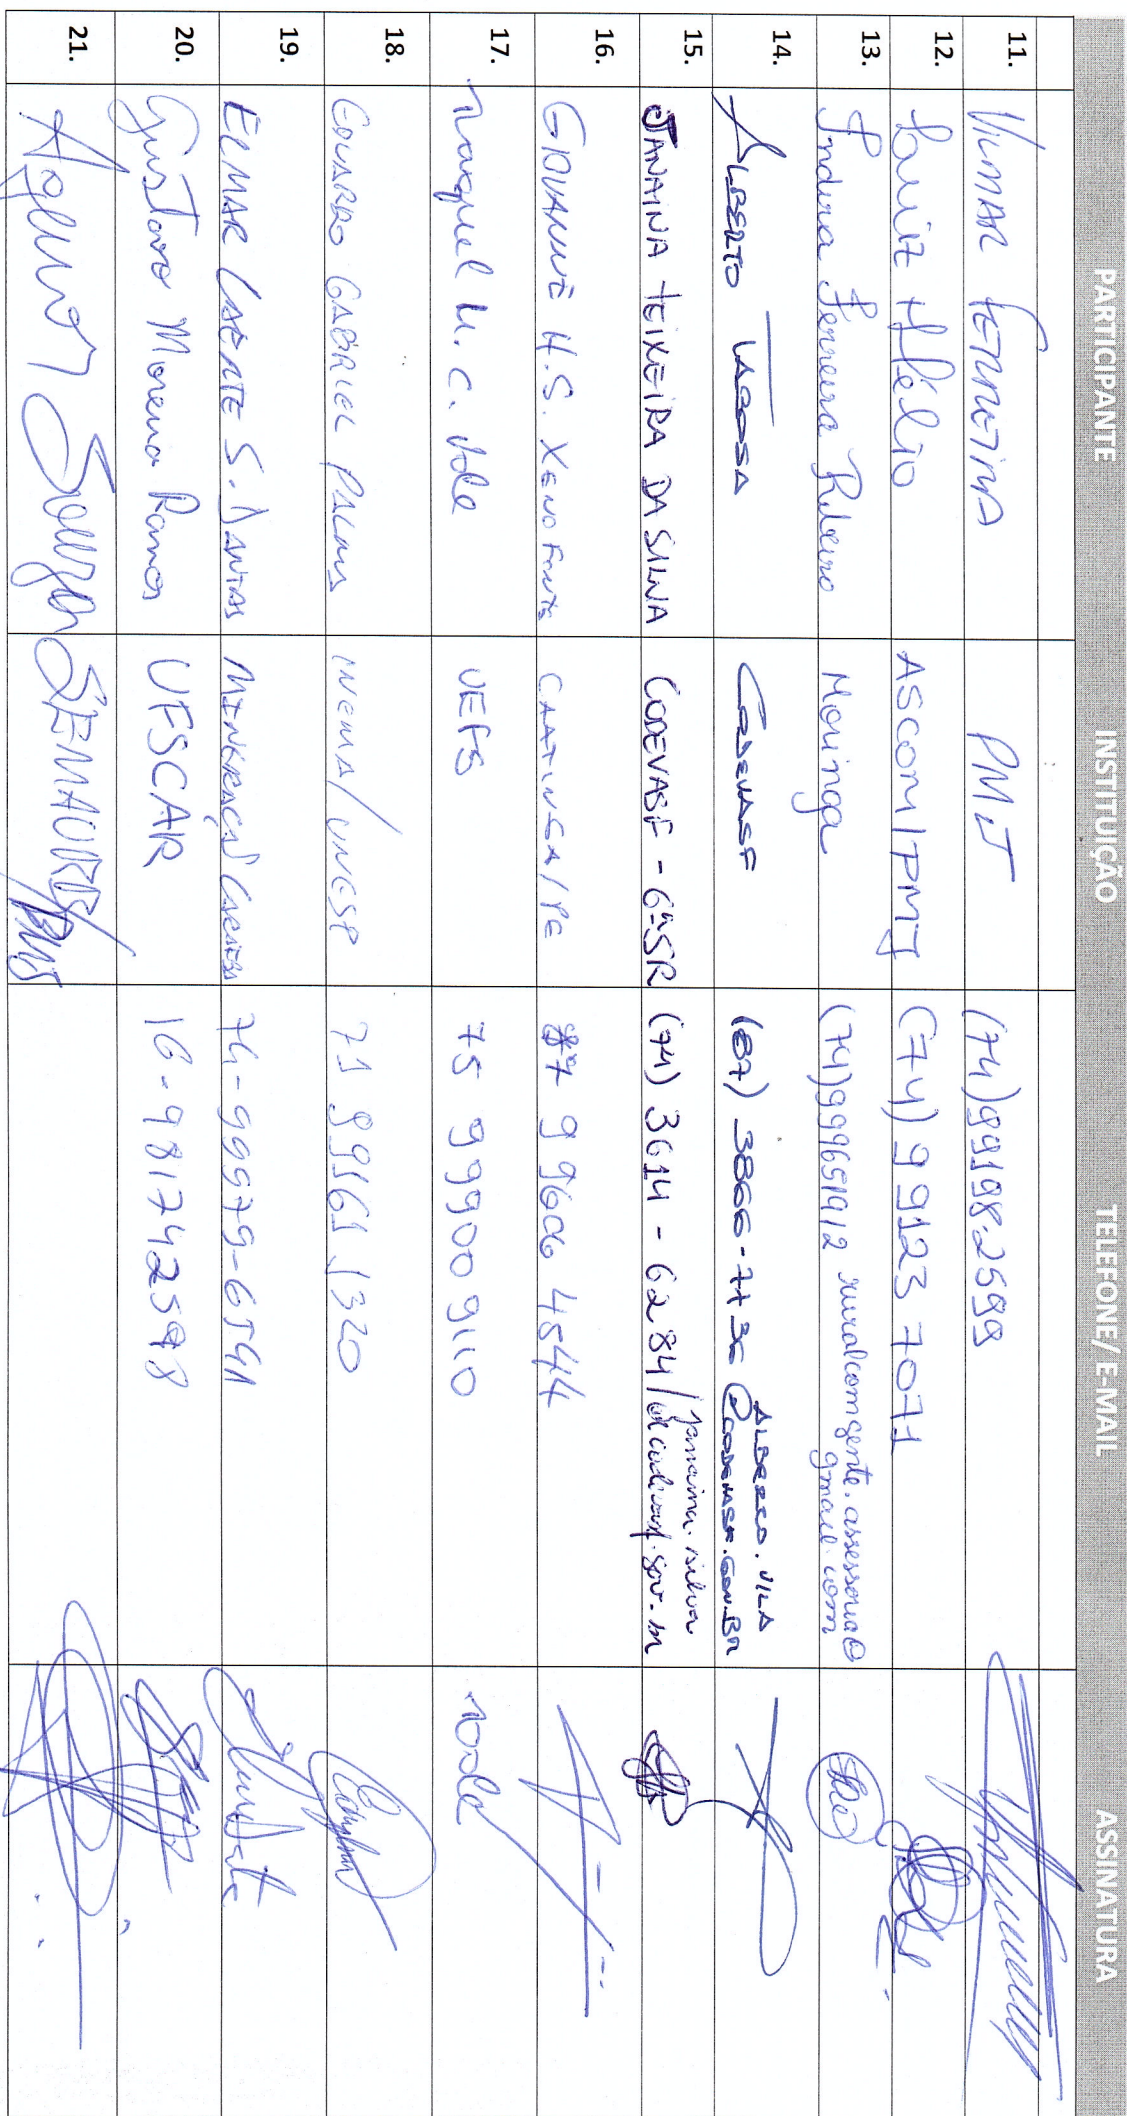 PARTICIPANTE INSTITUIÇÃO TELEFONE/ E-MAIL ASSINATURA
11. VILMAR FERREIRA PMJ (74)99198.2599
12. Luiz Hélio ASCOM/PMJ (74) 9 9123 7071
13. Indira Ferreira Ribeiro Moringa (74)999651912 ruralcomgente.assessoria@
gmail.com
14. ALBERTO TABOSA CODEVASF (87) 3866-7736 ALBERTO.VILA
@CODEVASF.GOV.BR
15. JANAINA TEIXEIRA DA SILVA CODEVASF - 6ªSR (74) 3614 - 6284/ janaina.silva
@codevasf.gov.br
16. GIOVANNE H.S. XENOFONTE CAATINGA/PE 87 9 9606 4544
17. Raquel M. C. UEFS 75 99900 9110
18. EDUARDO GABRIEL PALMA INEMA/UNESP 71 99161 1320
19. ELMAR S. DANTAS MINERAÇÃO CARAÍBA 74-99979-6541
20. Gustavo Moreira Ramos UFSCAR 16-981742598
21. Agenor Souza SEMAURB/PMJ